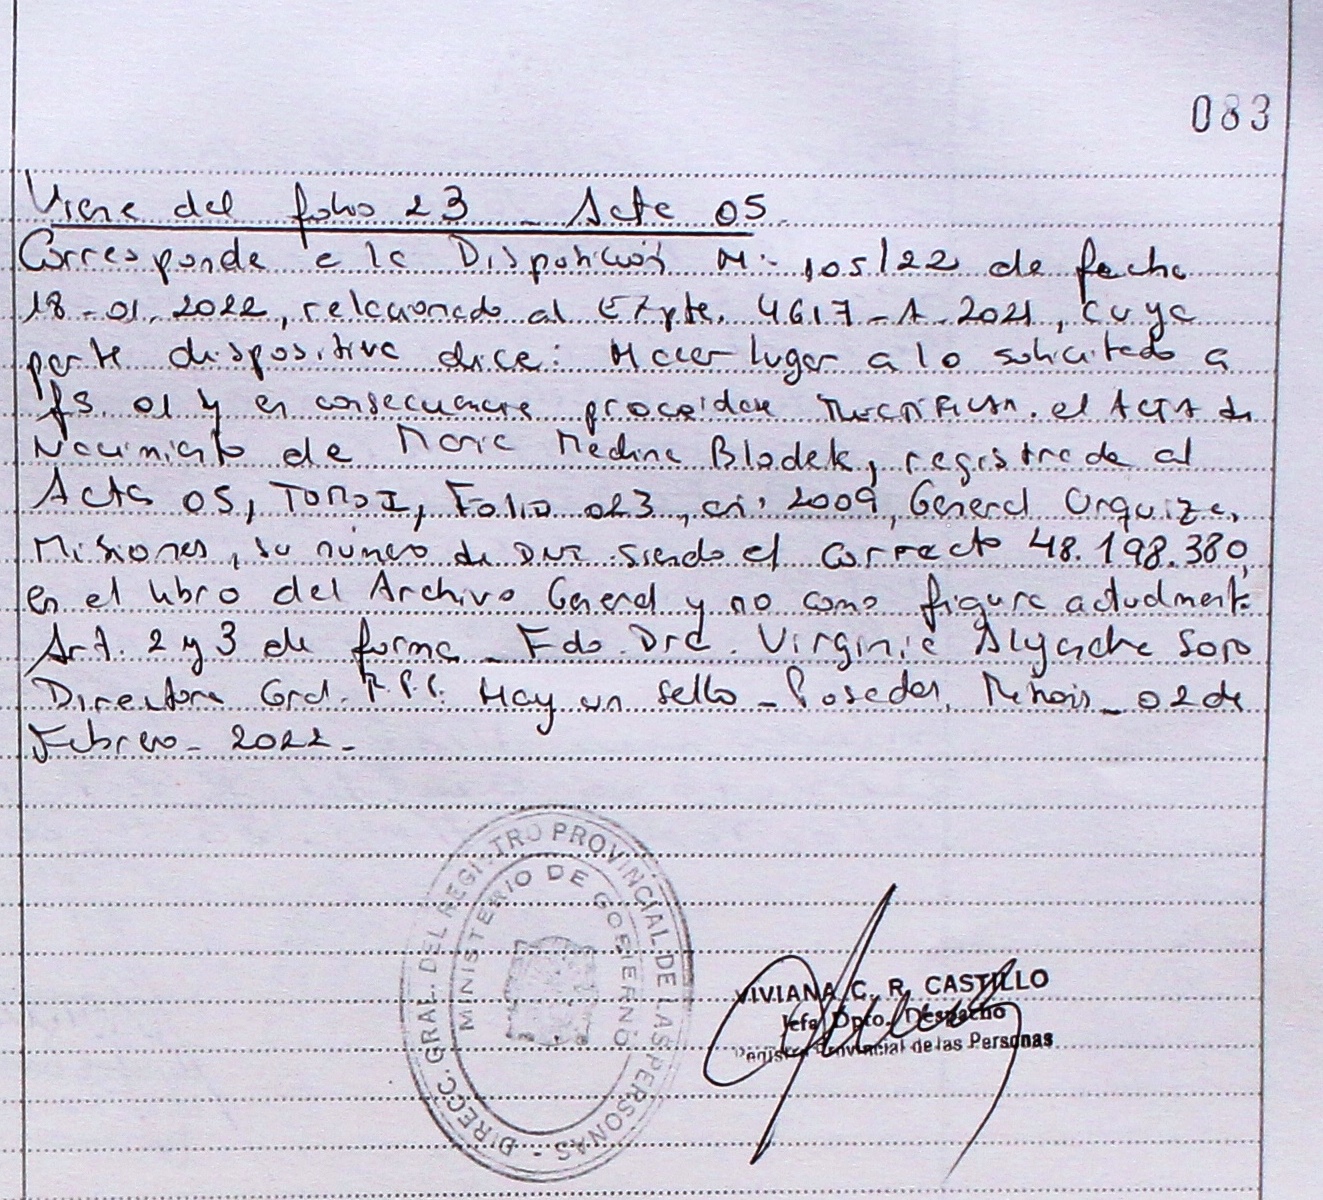 083
Viene del folio 23 - Acta 05.
Corresponde a la Disposición N°. 105/22 de fecha
18-01-2022, relacionado al Expte. 4617-A-2021, cuya
parte dispositiva dice: Hacer lugar a lo solicitado a
fs. 01 y en consecuencia proceidae Rectificar el Acta de
Nacimiento de Maria Medina Bladek, registrada al
Acta 05, Tomo I, Folio 023, año 2009, General Urquiza,
Misiones, su número de DNI siendo el correcto 48.198.380,
en el libro del Archivo General y no como figura actualmente
Art. 2 y 3 de forma - Fdo. Dra. Virginia Alyache Sopo
Directora Gral. R.P.P. Hay un sello - Posadas, Mnes - 02 de
Febrero - 2022 -
DIRECC. GRAL. DEL REGISTRO PROVINCIAL DE LAS PERSONAS -
MINISTERIO DE GOBIERNO
VIVIANA C. R. CASTILLO
Jefa Dpto. Despacho
Registro Provincial de las Personas